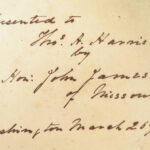 resented to
Tho. A. Harris
by
Hon. John James
of Missou
shington March 26